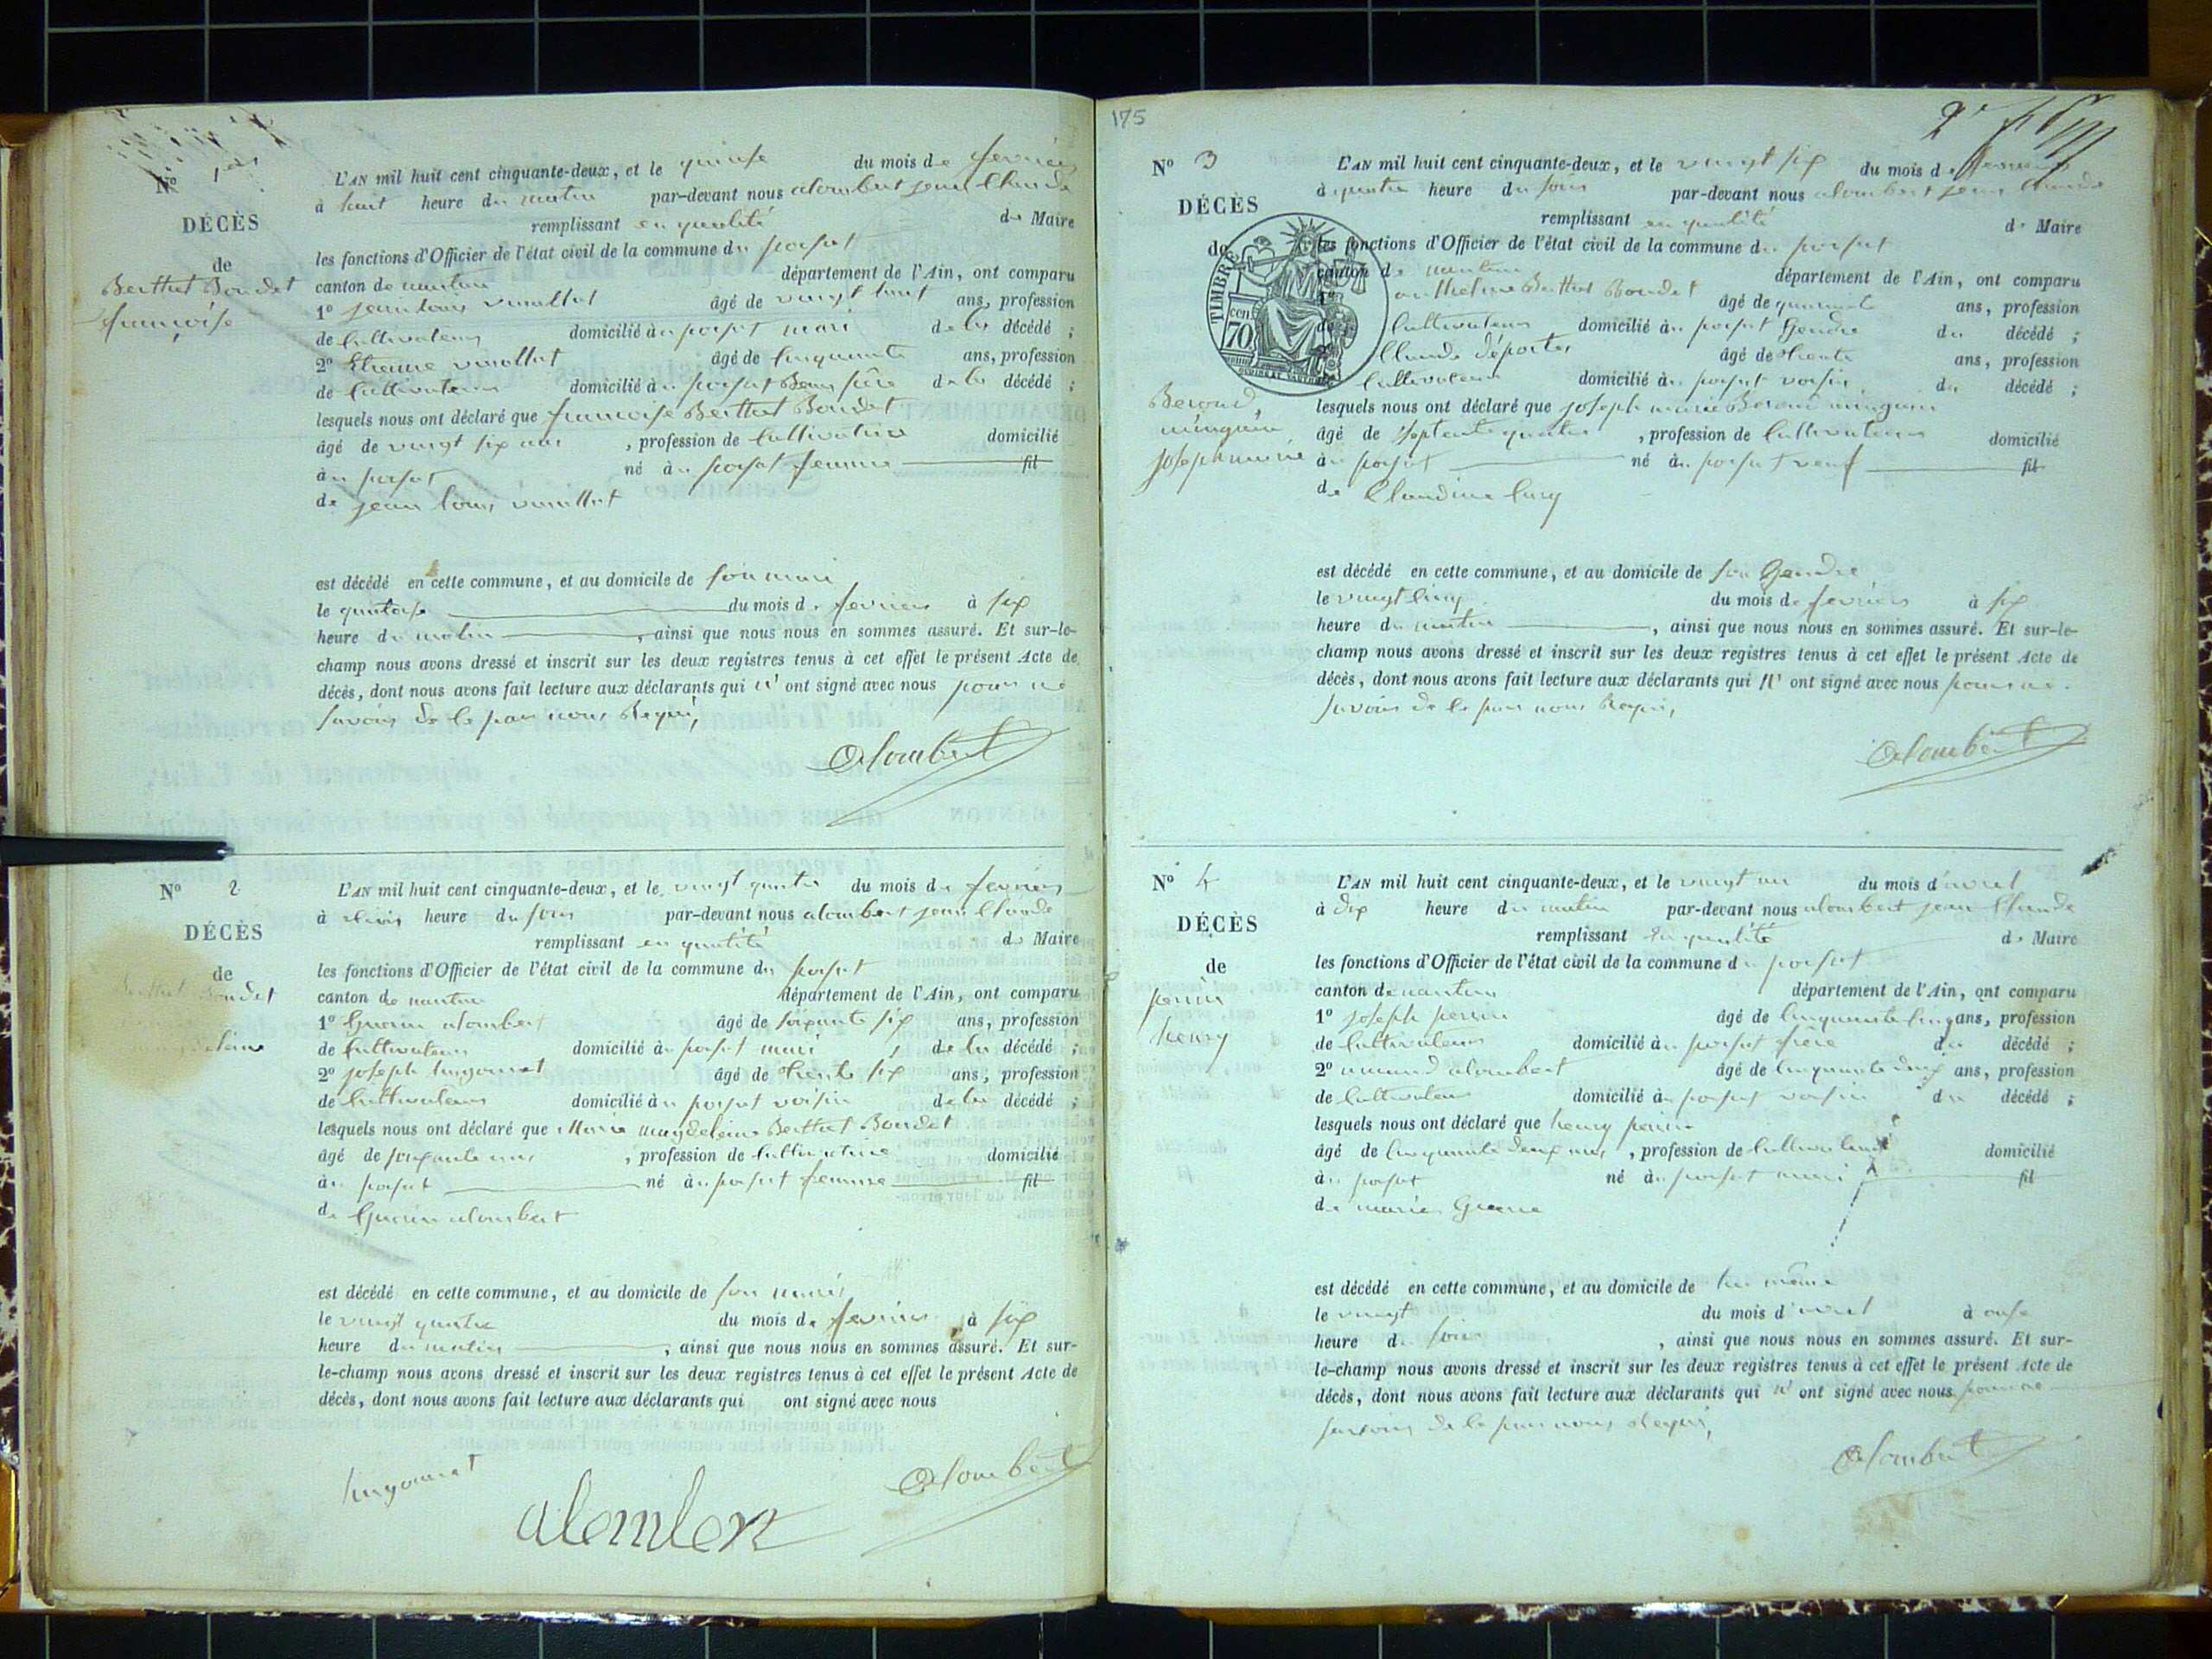 N° 1er
DÉCÈS
de
Berthet Bondet
françoise
L'AN mil huit cent cinquante-deux, et le quinse du mois de fevrier
à huit heure du matin par-devant nous alombert jean Claude
remplissant en qualité de Maire
les fonctions d'Officier de l'état civil de la commune du poisat
canton de nantua département de l'Ain, ont comparu
1° jean louis vuaillat âgé de vingt huit ans, profession
de Cultivateur domicilié au poisat mari de la décédé ;
2° Etienne vuaillat âgé de Cinquante ans, profession
de Cultivateur domicilié au poisat Beau père de la décédé ;
lesquels nous ont déclaré que francoise Berthet Bondet
âgé de vingt six ans , profession de Cultivatrice domicilié
au poisat né au poisat femme fil
de jean louis vuaillat
est décédé en cette commune, et au domicile de son mari
le quatorse du mois de fevrier à six
heure du matin , ainsi que nous nous en sommes assuré. Et sur-le-
champ nous avons dressé et inscrit sur les deux registres tenus à cet effet le présent Acte de
décès, dont nous avons fait lecture aux déclarants qui n' ont signé avec nous pour ne
savoir de le par nous Requi,
Alombert
N° 2
DÉCÈS
de
Berthet Bondet
L'AN mil huit cent cinquante-deux, et le vingt quatre du mois de fevrier
à heure du soir par-devant nous alombert jean Claude
remplissant en qualité de Maire
les fonctions d'Officier de l'état civil de la commune du poisat
canton de nantua département de l'Ain, ont comparu
1° alombert âgé de soixante six ans, profession
de Cultivateur domicilié au poisat mari de la décédé ;
2° joseph âgé de trente six ans, profession
de Cultivateur domicilié au poisat voisin de la décédé ;
lesquels nous ont déclaré que Marie magdeleine Berthet Bondet
âgé de soixante ans , profession de Cultivatrice domicilié
au poisat né au poisat femme fil
de alombert
est décédé en cette commune, et au domicile de son mari
le vingt quatre du mois de fevrier à six
heure du matin , ainsi que nous nous en sommes assuré. Et sur-
le-champ nous avons dressé et inscrit sur les deux registres tenus à cet effet le présent Acte de
décès, dont nous avons fait lecture aux déclarants qui ont signé avec nous
Alombert
alombert
175
2e
N° 3
DÉCÈS
de
TIMBRE
cen
70
Beroud,
minguin
joseph marie
L'AN mil huit cent cinquante-deux, et le vingt six du mois de fevrier
à quatre heure du soir par-devant nous alombert jean Claude
remplissant en qualité de Maire
les fonctions d'Officier de l'état civil de la commune du poisat
canton de nantua département de l'Ain, ont comparu
anthelme Berthet Bondet âgé de quarante ans, profession
de Cultivateur domicilié au poisat Gendre du décédé ;
Claude déportes âgé de trente ans, profession
Cultivateur domicilié au poisat voisin du décédé ;
lesquels nous ont déclaré que joseph marie Beroud minguin
âgé de septante quatre , profession de Cultivateur domicilié
au poisat né au poisat veuf fil
de Claudine Cury
est décédé en cette commune, et au domicile de son Gendre
le vingt Cinq du mois de fevrier à six
heure du matin , ainsi que nous nous en sommes assuré. Et sur-le-
champ nous avons dressé et inscrit sur les deux registres tenus à cet effet le présent Acte de
décès, dont nous avons fait lecture aux déclarants qui N' ont signé avec nous pour ne
savoir de le par nous Requi,
Alombert
N° 4
DÉCÈS
de
perrin
henry
L'AN mil huit cent cinquante-deux, et le vingt un du mois d'avril
à dix heure du matin par-devant nous alombert jean Claude
remplissant en qualité de Maire
les fonctions d'Officier de l'état civil de la commune du poisat
canton de nantua département de l'Ain, ont comparu
1° joseph perrin âgé de Cinquante Cinq ans, profession
de Cultivateur domicilié au poisat frère du décédé ;
2° amand alombert âgé de Cinquante deux ans, profession
de Cultivateur domicilié au poisat voisin du décédé ;
lesquels nous ont déclaré que henry perrin
âgé de Cinquante deux ans , profession de Cultivateur domicilié
au poisat né au poisat mari fil
de marie
est décédé en cette commune, et au domicile de lui même
le vingt du mois d'avril à onse
heure du soir , ainsi que nous nous en sommes assuré. Et sur-
le-champ nous avons dressé et inscrit sur les deux registres tenus à cet effet le présent Acte de
décès, dont nous avons fait lecture aux déclarants qui n' ont signé avec nous pour ne
savoir de le par nous Requi,
Alombert